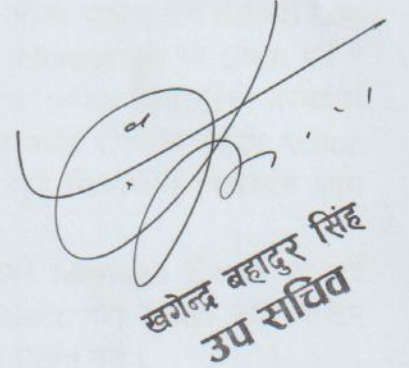 खगेन्द्र बहादुर सिंह
उप सचिव